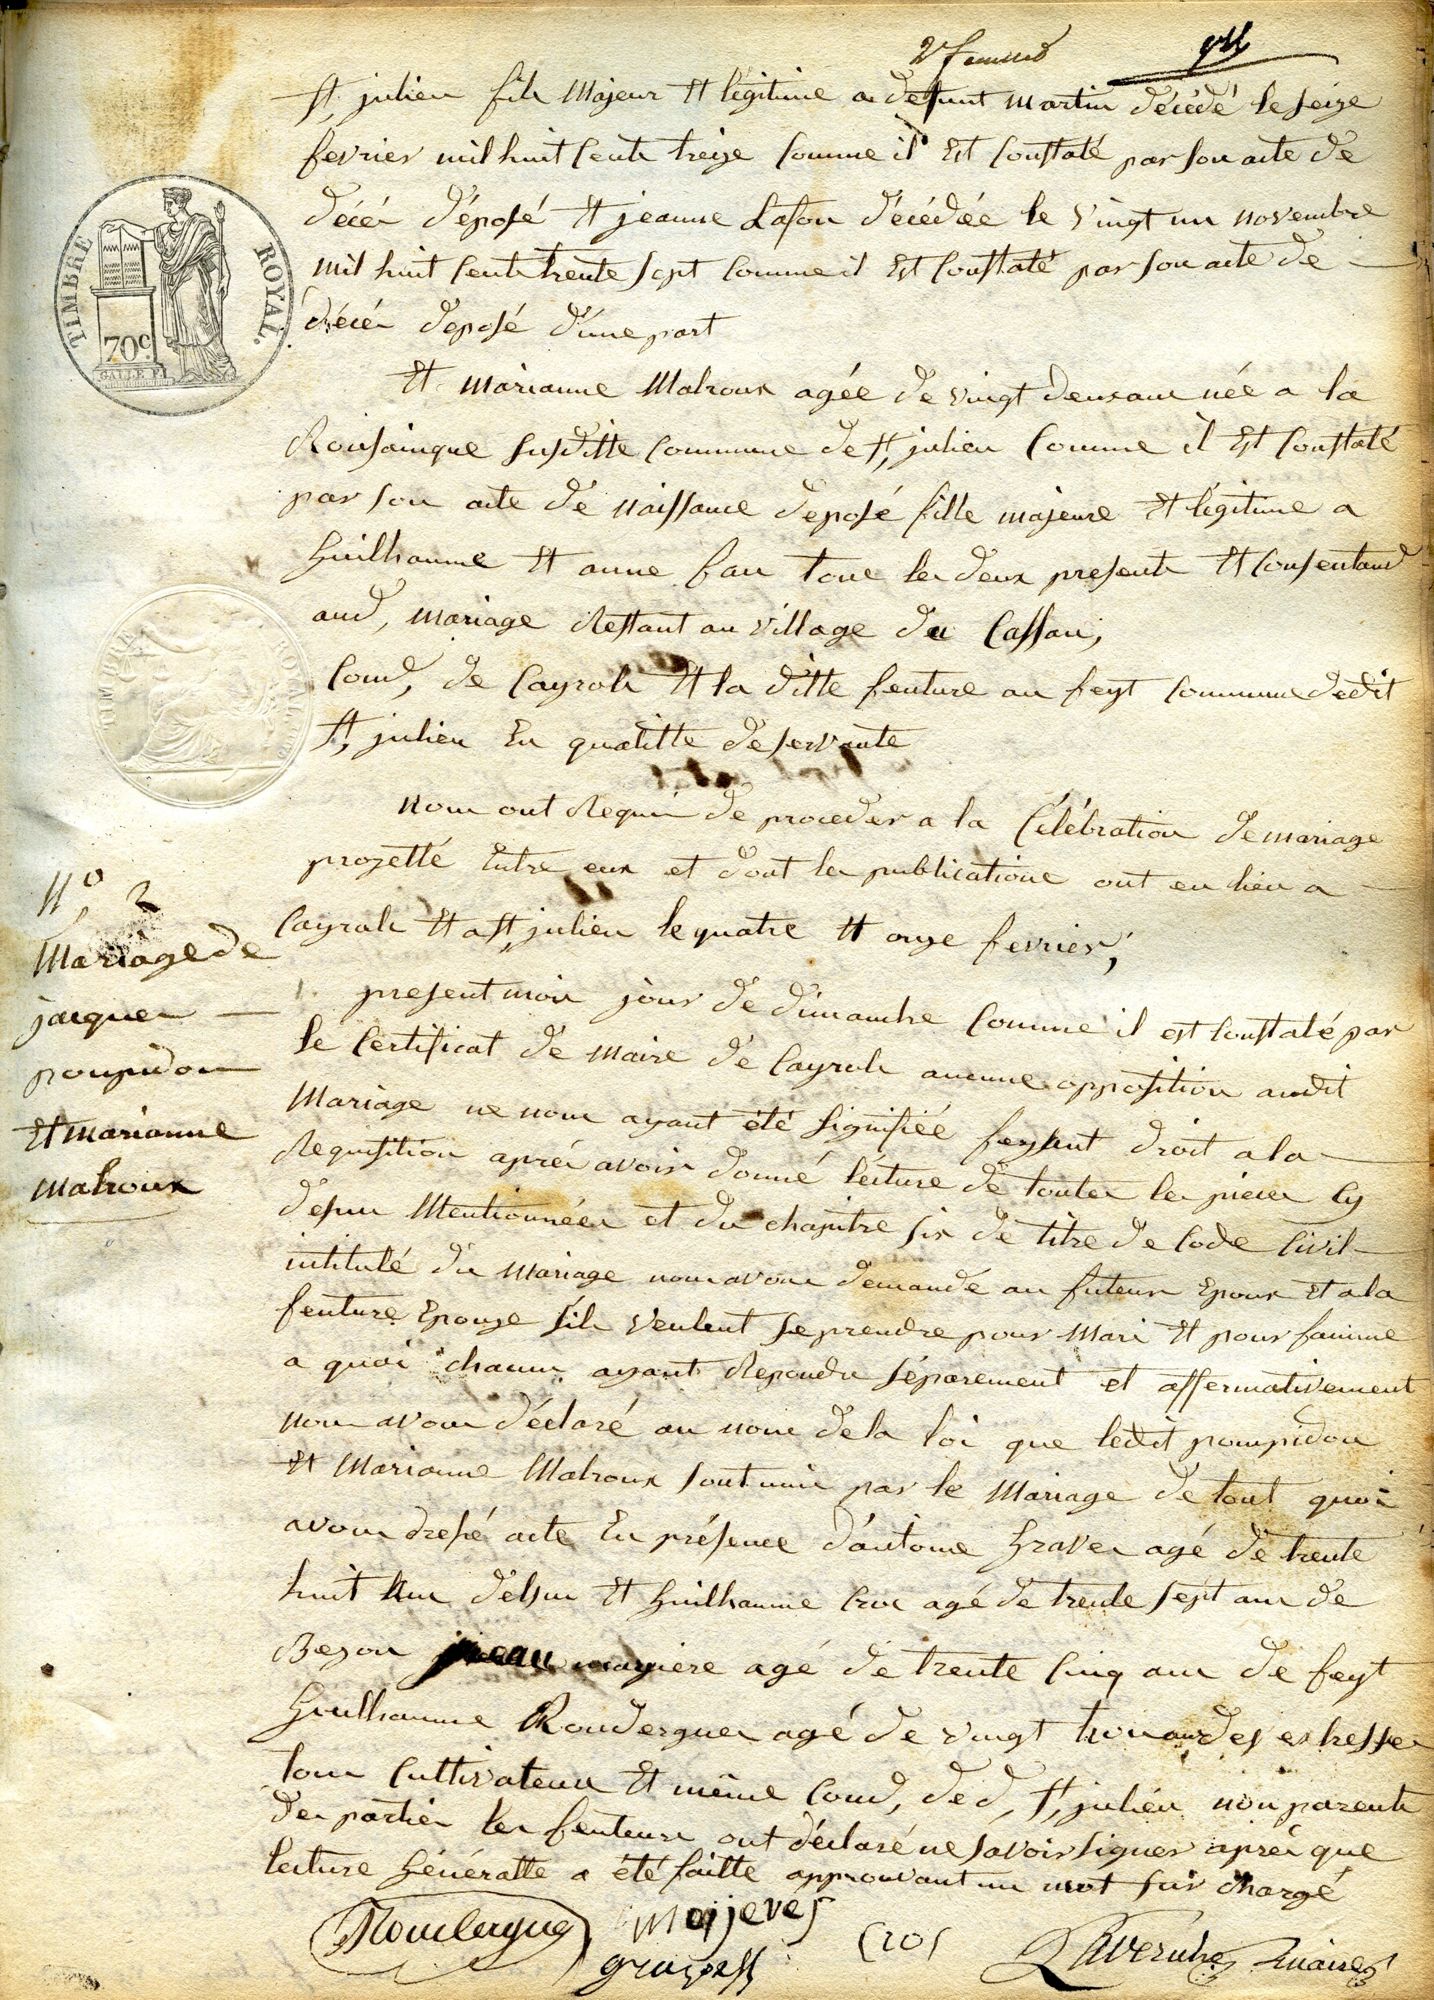 2e feuillet
St, julien fils Majeur Et légitime a defunt martin décédé le seize
fevrier mil huit cents treize Comme il Est Constaté par son acte de
décés déposé Et jeanne Lafon décédée le vingt un novembre
mil huit cents trente sept Comme il Est Constaté par son acte de
décés déposé d'une part
Et Marianne Malroux agée de vingt deux ans née a la
Rousainque susditte Commune de St, julien Comme il Est Constaté
par son acte de naissance déposé fille majeure Et légitime a
Guilhaume Et anne fau tous les deux presents Et Consentand
aud, mariage Restant au village du Cassan,
Comd, de Cayrols Et la ditte feuture au feyt Commune dedit
St, julien En qualitte de servante
nous ont Requis de proceder a la Célébration de mariage
projetté Entre eux et dont les publications ont eu lieu a
Cayrols Et a St, julien le quatre Et onze fevrier,
N° 2
Mariage de
jacques
poupidou
Et marianne
malroux
present mois jours de dimanche Comme il est Constaté par
le Certificat de Maire de Cayrols aucune opposition audit
Mariage ne nous ayant été signifiée feysant droit a la
Requisition aprés avoir donné lecture de toutes les pieces Cy
desus Mentionnées et du chapitre six de titre de Code Civil
intitulé du Mariage nous avons demandé au futeur Epoux Et a la
feuture Epouze s'ils veulent se prendre pour Mari Et pour famme
a quoi chacun ayant Repondu séparement et affermativement
nous avons déclaré au nom de la loi que ledit pompidou
Et Marianne Malroux sont unis par le Mariage de tout quoi
avons dressé acte En présence d'antoine Graves agé de trente
huit ans delsur Et Guilhaume Cros agé de trente sept ans de
Bezon jean mayniere agé de trente Cinq ans de feyt
Guilhaume Roudergues agé de vingt trois ans des estresses
tous Cultivateurs Et même Comd, ded, St, julien non parents
des parties les feuteurs ont déclaré ne savoir signer aprés que
lecture Généralle a été faitte approuvant un mot sur chargé
Roudergues Majeves Cros Laveruhe maire
graves
TIMBRE ROYAL.
70c.
GALLE F.
TIMBRE ROYAL